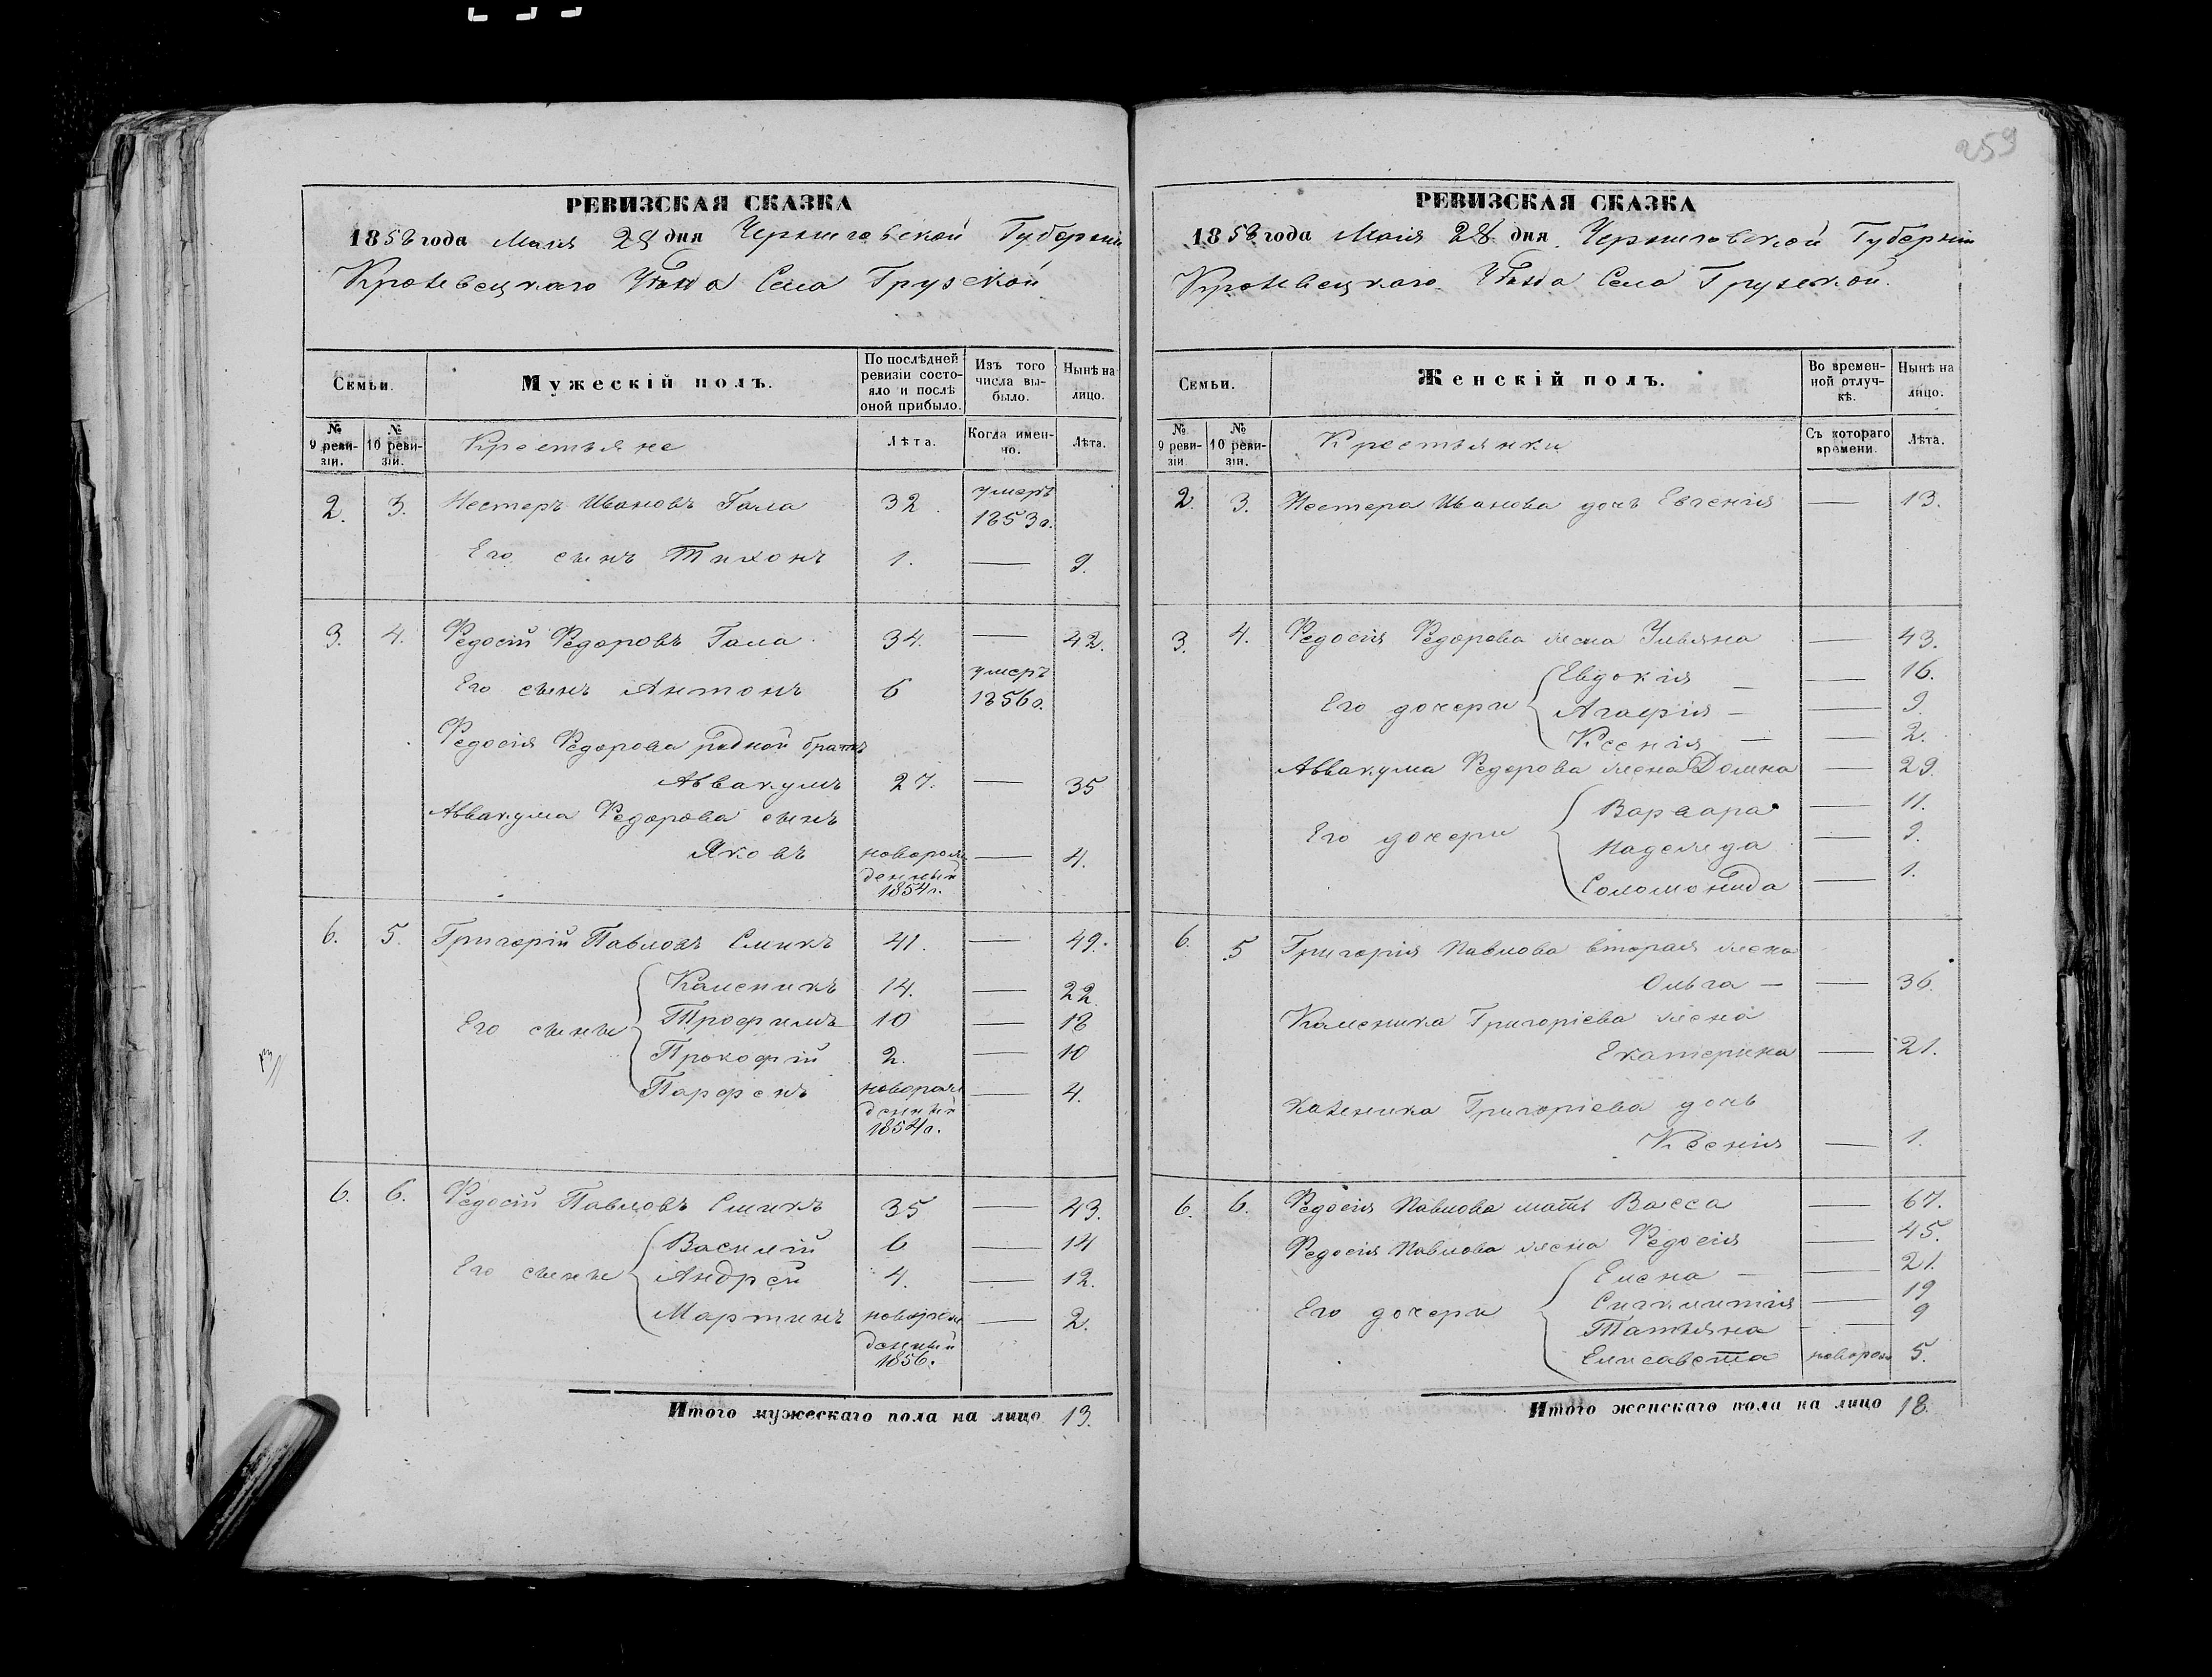 259
РЕВИЗСКАЯ СКАЗКА
1858 года Мая 28 дня Черниговской Губерніи
Кролевецкаго Уѣзда Села Грузской
Семьи.
Мужескій полъ.
По послѣдней ревизіи состояло и послѣ оной прибыло.
Изъ того числа выбыло.
Нынѣ на лицо.
№ 9 ревизіи.
№ 10 ревизіи.
Крестьяне
Лѣта.
Когда именно.
Лѣта.
2. 3. Нестеръ Ивановъ Гала 32. умеръ 1853 г.
Его сынъ Тихонъ 1. — 9.
3. 4. Федосій Федоровъ Гала 34. — 42.
Его сынъ Антонъ 6 умеръ 1856 г.
Федосія Федорова родной братъ
Аввакумъ 27. — 35
Аввакума Федорова сынъ
Яковъ новорожденный 1854 г. — 4.
6. 5. Григорій Павловъ Смыкъ 41. — 49.
Его сыны
Каленикъ 14. — 22.
Трофимъ 10 — 18
Прокофій 2. — 10
Парфенъ новорожденный 1854 г. — 4.
6. 6. Федосій Павловъ Смыкъ 35 — 43.
Его сыны
Василій 6 — 14
Андрей 4. — 12.
Мартинъ новорожденный 1856. — 2.
Итого мужескаго пола на лицо 13.
РЕВИЗСКАЯ СКАЗКА
1858 года Мая 28 дня Черниговской Губерніи
Кролевецкаго Уѣзда Села Грузской.
Семьи.
Женскій полъ.
Во временной отлучкѣ.
Нынѣ на лицо.
№ 9 ревизіи
№ 10 ревизіи.
Крестьянки
Съ котораго времени.
Лѣта.
2. 3. Нестера Иванова дочь Евгенія — 13.
3. 4. Федосія Федорова жена Ульяна — 43.
Его дочери
Евдокія — — 16.
Агафія — — 9.
Ксенія — — 2.
Аввакума Федорова жена Домна — 29.
Его дочери
Варвара — 11.
Надежда — 9.
Соломонида — 1.
6. 5 Григорія Павлова вторая жена
Ольга — — 36.
Каленика Григоріева жена
Екатерина — 21.
Каленика Григоріева дочь
Ксенія — 1.
6. 6. Федосія Павлова мать Васса — 67.
Федосія Павлова жена Федосія — 45.
Его дочери
Елена — — 21.
Сигклитія — 19
Татьяна — 9
Елисавета новорож 5.
Итого женскаго пола на лицо 18.